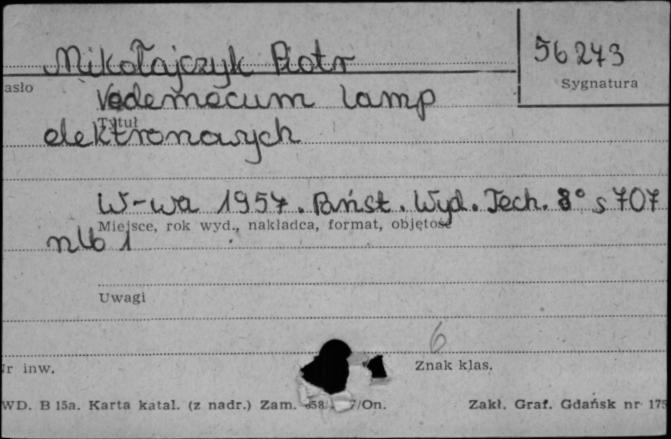 Mikołajczyk Piotr
56243
asło
Sygnatura
Vademecum lamp
Tytuł
elektronowych
W-wa 1957. Państ. Wyd. Tech. 8° s 707
Miejsce, rok wyd., nakładca, format, objętość
nlb 1
Uwagi
6
Nr inw.
Znak klas.
WD. B 15a. Karta katal. (z nadr.) Zam. 7/On. Zakł. Graf. Gdańsk nr 175